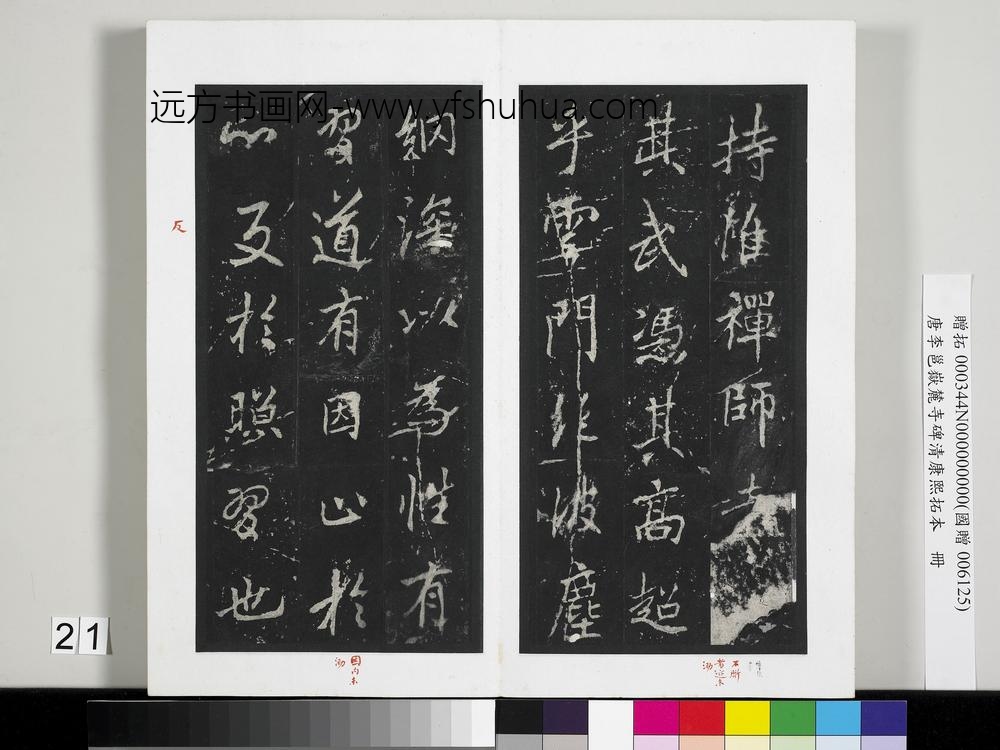 远方书画网-www.yfshuhua.com
持惟禪師
其武憑其高超
乎雲門 彼塵
網深以為性有
習道有因止於
心反於 習也
反
因內未
泐
石斷
泐
贈拓 000344N000000000(國贈 006125)
唐李邕嶽麓寺碑清康熙拓本 冊
21